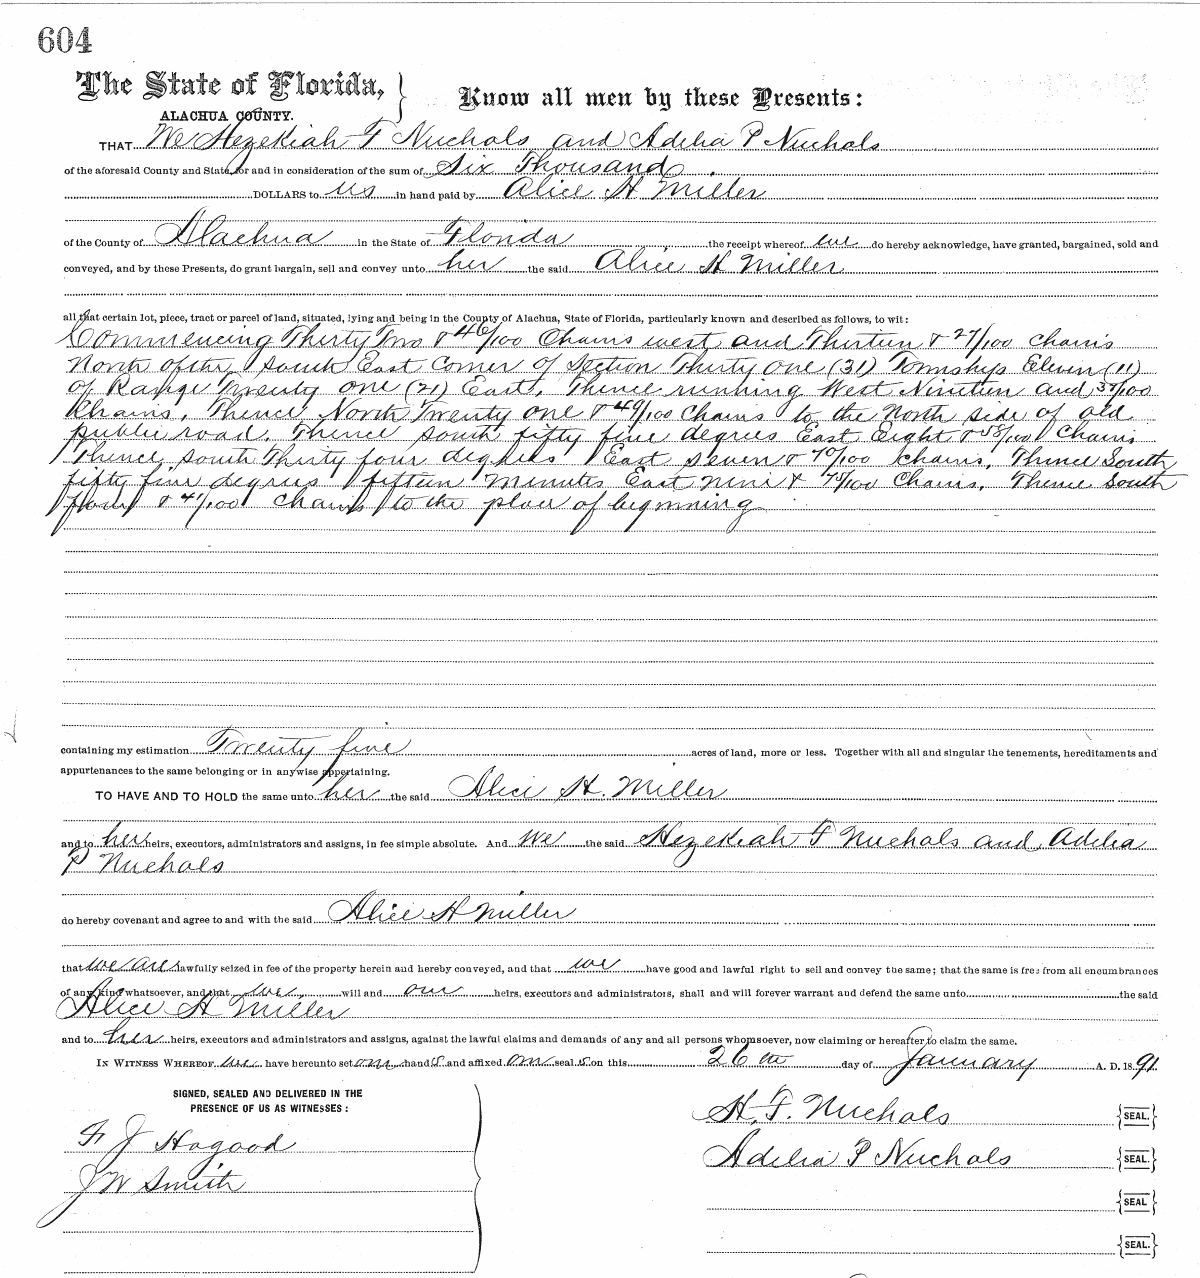 604
The State of Florida, }
ALACHUA COUNTY.
Know all men by these Presents:
THAT We Hezekiah F Nuchols and Adelia P Nuchols
of the aforesaid County and State, for and in consideration of the sum of Six Thousand
DOLLARS to us in hand paid by Alice H Miller
of the County of Alachua in the State of Florida the receipt whereof we do hereby acknowledge, have granted, bargained, sold and
conveyed, and by these Presents, do grant bargain, sell and convey unto her the said Alice H Miller
all that certain lot, piece, tract or parcel of land, situated, lying and being in the County of Alachua, State of Florida, particularly known and described as follows, to wit:
Commencing Thirty Two & 46/100 Chains west and Thirteen & 27/100 chains
North of the South East Corner of Section Thirty One (31) Township Eleven (11)
of Range Twenty one (21) East. Thence running West Nineteen and /100
Chains. Thence North Twenty one & 49/100 Chains to the North side of old
public road. Thence south fifty five degrees East Eight & 58/100 Chains
Thence South Thirty four degrees East seven & 70/100 Chains. Thence South
fifty five degrees fifteen minutes East Nine & Chains. Thence South
four & 41/100 Chains to the place of beginning
containing my estimation Twenty five acres of land, more or less. Together with all and singular the tenements, hereditaments and
appurtenances to the same belonging or in anywise appertaining.
TO HAVE AND TO HOLD the same unto her the said Alice H. Miller
and to her heirs, executors, administrators and assigns, in fee simple absolute. And We the said Hezekiah F Nuchols and Adelia
P Nuchols
do hereby covenant and agree to and with the said Alice H Miller
that we are lawfully seized in fee of the property herein and hereby conveyed, and that we have good and lawful right to sell and convey the same; that the same is free from all encumbrances
of any kind whatsoever, and that we will and our heirs, executors and administrators, shall and will forever warrant and defend the same unto the said
Alice H Miller
and to her heirs, executors and administrators and assigns, against the lawful claims and demands of any and all persons whomsoever, now claiming or hereafter to claim the same.
IN WITNESS WHEREOF we have hereunto set our hand s and affixed our seal s on this 26th day of January A. D. 1891.
SIGNED, SEALED AND DELIVERED IN THE
PRESENCE OF US AS WITNESSES:
F J Hagood
J W Smith
H. F. Nuchols {SEAL.}
Adelia P Nuchols {SEAL.}
{SEAL}
{SEAL.}